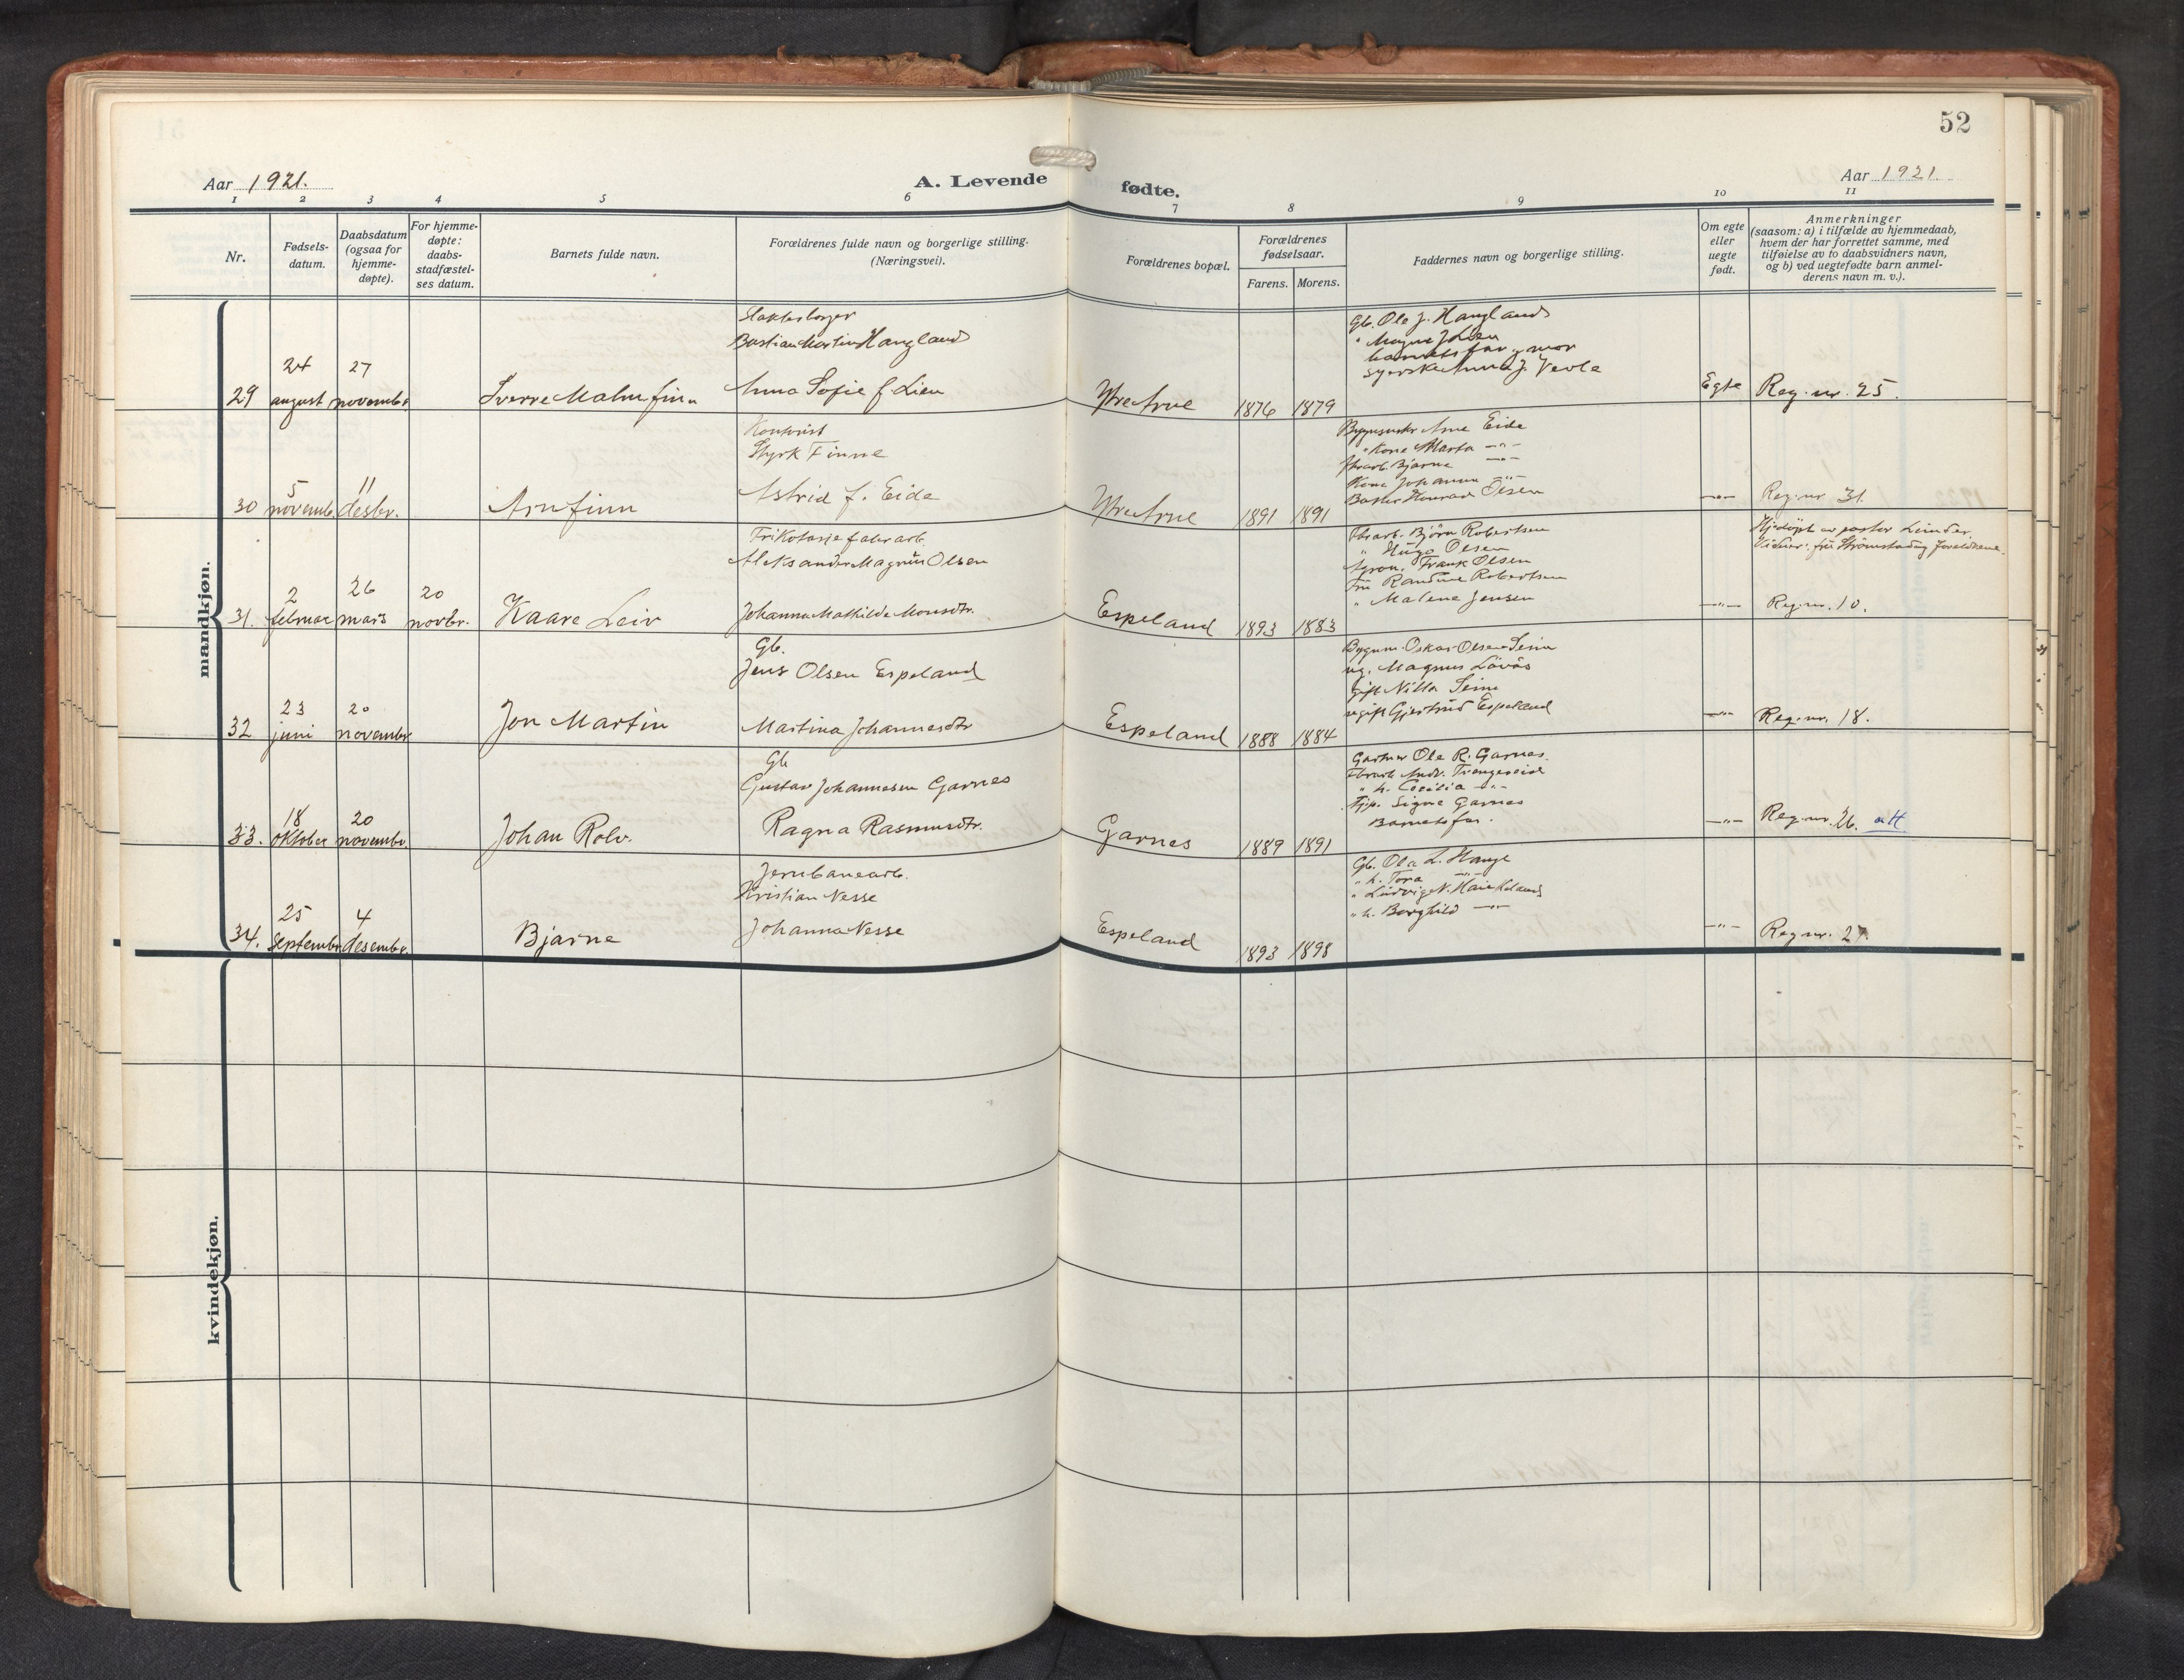 52
Aar 1921.
A. Levende fødte.
Aar 1921.
1 2 3 4 5 6 7 8 9 10 11
Nr.
Fødsels-
datum.
Daabsdatum
(ogsaa for
hjemme-
døpte).
For hjemme-
døpte:
daabs-
stadfæstel-
ses datum.
Barnets fulde navn.
Forældrenes fulde navn og borgerlige stilling.
(Næringsvei).
Forældrenes bopæl.
Forældrenes
fødselsaar.
Farens. Morens.
Faddernes navn og borgerlige stilling.
Om egte
eller
uegte
født.
Anmerkninger
(saasom: a) i tilfælde av hjemmedaab,
hvem der har forrettet samme, med
tilføielse av to daabsvidners navn,
og b) ved uegtefødte barn anmel-
derens navn m. v.).
mandkjøn.
29
24
august
27
novembr
Sverre Malmfinn
Bastian Martin Haugland
Anna Sofie f. Lien
Ytre Arne
1876 1879
Gb. Ole J. Haugland
barnets far og mor
Egte
Reg. nr. 25.
30
5
novemb.
11
desbr.
Arnfinn
Kontorist
Styrk Finne
Astrid f. Eide
Ytre Arne
1891 1891
Arne Eide
" Kone Marta —"—
Fbrarb. Bjarne —"—
Kone Johanna —"—
Reg. nr. 31.
31.
2
februar
26
mars
20
novbr.
Kaare Leiv
Trikotasjefabrarb.
Aleksander Magnus Olsen
Johanna Mathilde Monsdtr.
Espeland
1893 1883
Fbrarb. Bjørn Robertsen
" Hugo Olsen
Frank Olsen
Fru Randine Robertsen
" Malene Jensen
—"—
Hjedöpt av pastor
Reg. nr. 10.
32
23
juni
20
novembr
Jon Martin
Gb.
Jens Olsen Espeland
Martina Johannesdtr
Espeland
1888 1884
Bygnm. Oskar Olsen Seim
ug. Magnus Lövås
gift Nilla Seim
ugift Gjertrud Espeland
—"—
Reg. nr. 18.
33.
18
oktober
20
novembr.
Johan Rolv.
Gb
Gustav Johannesen Garnes
Ragna Rasmusdtr.
Garnes
1889 1891
Gartner Ole R. Garnes.
Fbrarb. Andr. Trengereid
" h. Cecilia —"—
Tjp. Signe Garnes
Barnets far.
—"—
Reg. nr. 26. att
34.
25
septembr
4
desembr.
Bjarne
Jernbanearb.
Kristian Nesse
Johanna Nesse
Espeland
1893 1898
Gb. Ola L. Hauge
" h. Tora —"—
" Ludvig N.
" h. Borghild —"—
—"—
Reg. nr. 27.
kvindekjøn.